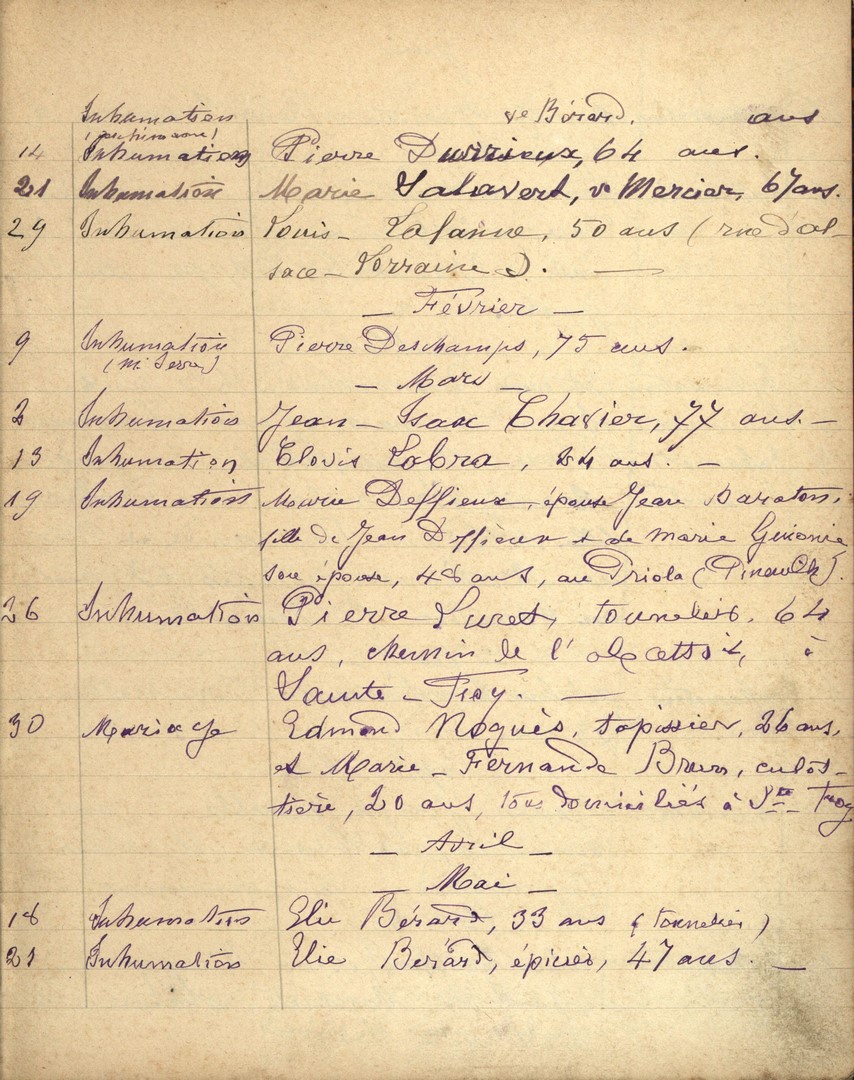 Inhumation ve Bérard. ans
14 Inhumation Pierre Durrieux, 64 ans.
21 Inhumation Marie Salavert, ve Mercier, 67 ans.
29 Inhumation Louis - Lafanne, 50 ans (rue d'al-
sace - Lorraine). —
- Février -
9 Inhumation Pierre Deschamps, 75 ans.
(M. Serre)
- Mars -
2 Inhumation Jean - Isaac Chavier, 77 ans. -
13 Inhumation Clovis Labra, 84 ans. -
19 Inhumation Marie Deffieux, épouse Jean Baraton,
fille de Jean Deffieux & de Marie
son épouse, 48 ans, au Priola (Pinault).
26 Inhumation Pierre Suret, tonnelier, 64
ans, chemin de l' à
Sainte - Foy. —
30 Mariage Edmond Noguès, tapissier, 26 ans,
et Marie - Fernande Brun, culot-
tière, 20 ans, tous domiciliés à Ste Foy
- Avril -
- Mai -
18 Inhumation Elie Bérard, 33 ans (tonnelier)
21 Inhumation Elie Berard, épicier, 47 ans. -